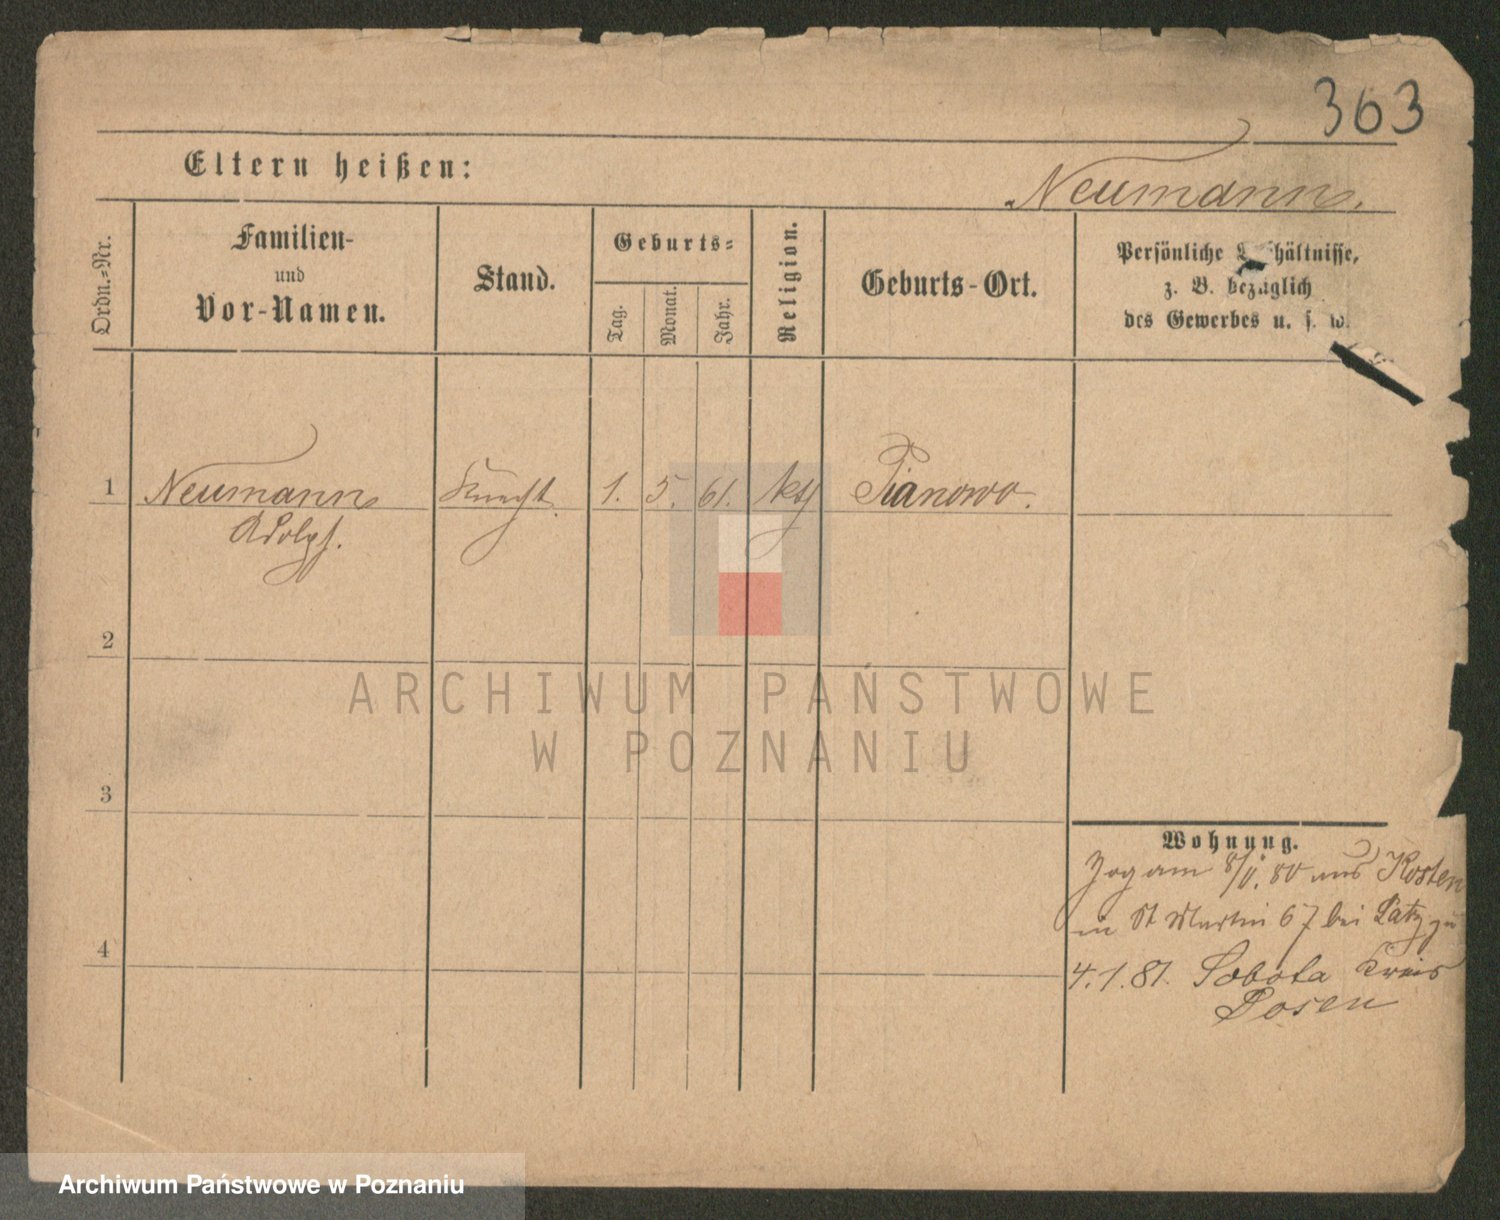 363
Eltern heißen:
Neumann.
Ordn.=Nr.
Familien-
und
Vor-Namen.
Stand.
Geburts=
Tag.
Monat.
Jahr.
Religion.
Geburts-Ort.
Persönliche Verhältnisse,
z. B. bezüglich
des Gewerbes u. s. w.
1 Neumann Knecht. 1. 5. 61. kth Pianowo.
Adolph.
2
ARCHIWUM PAŃSTWOWE
W POZNANIU
3
Wohnung.
Zog am 8/11.80 aus Kosten
in St Martin 67 bei Latz zu
4
4.1.81. Sobota Kreis
Posen
Archiwum Państwowe w Poznaniu